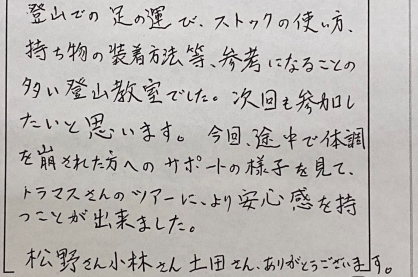 登山での足の運び、ストックの使い方、
持ち物の装着方法等、参考になることの
多い登山教室でした。次回も参加し
たいと思います。 今回、途中で体調
を崩された方へのサポートの様子を見て、
トラマスさんのツアーに、より安心感を持
つことが出来ました。
松野さん小林さん土田さん、ありがとうございます。